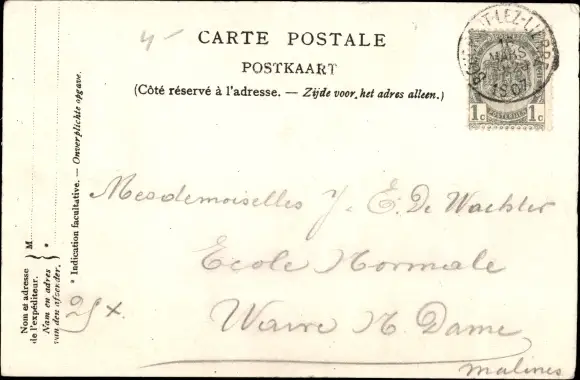 4-
CARTE POSTALE
POSTKAART
(Côté réservé à l'adresse. — Zijde voor het adres alleen.)
MARS
1907
1c 1c
Mesdemoiselles J. E. De Wachter
Ecole Normale
Wavre N. Dame
Malines
25 x.
M
Nom et adresse
de l'expéditeur.
Nam en adres
van den afzender.
* Indication facultative. — Onverplichte opgave.